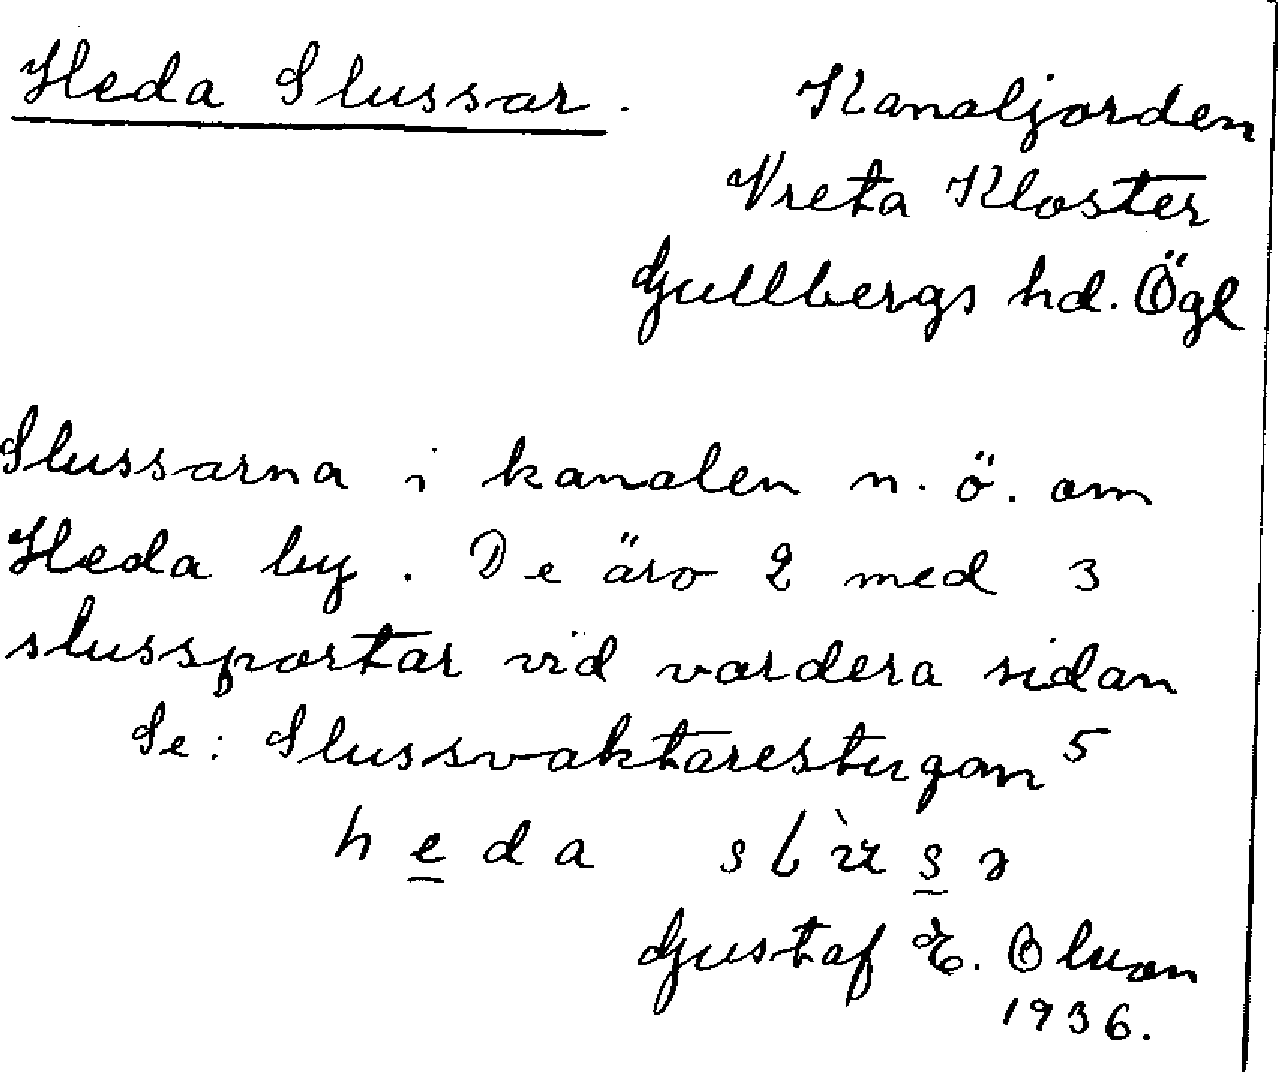 Heda Slussar.
Kanaljorden
Vreta Kloster
Gullbergs hd. Ögl
Slussarna i kanalen n. ö. om
Heda by. De äro 2 med 3
slussportar vid vardera sidan
Se: Slussvaktarestugan 5
heda
Gustaf E. Olson
1936.